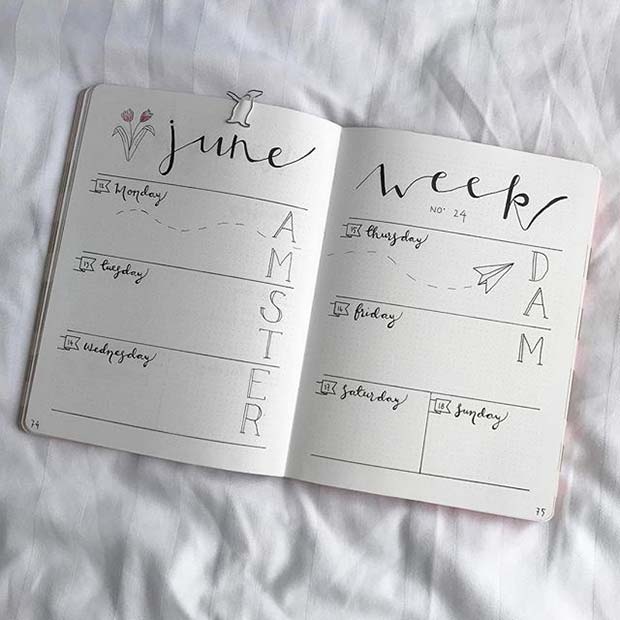 june
12 Monday
A
M
13 tuesday
S
T
14 wednesday
E
R
74
week
NO. 24
15 thursday
D
A
16 friday
M
17 saturday
18 sunday
75